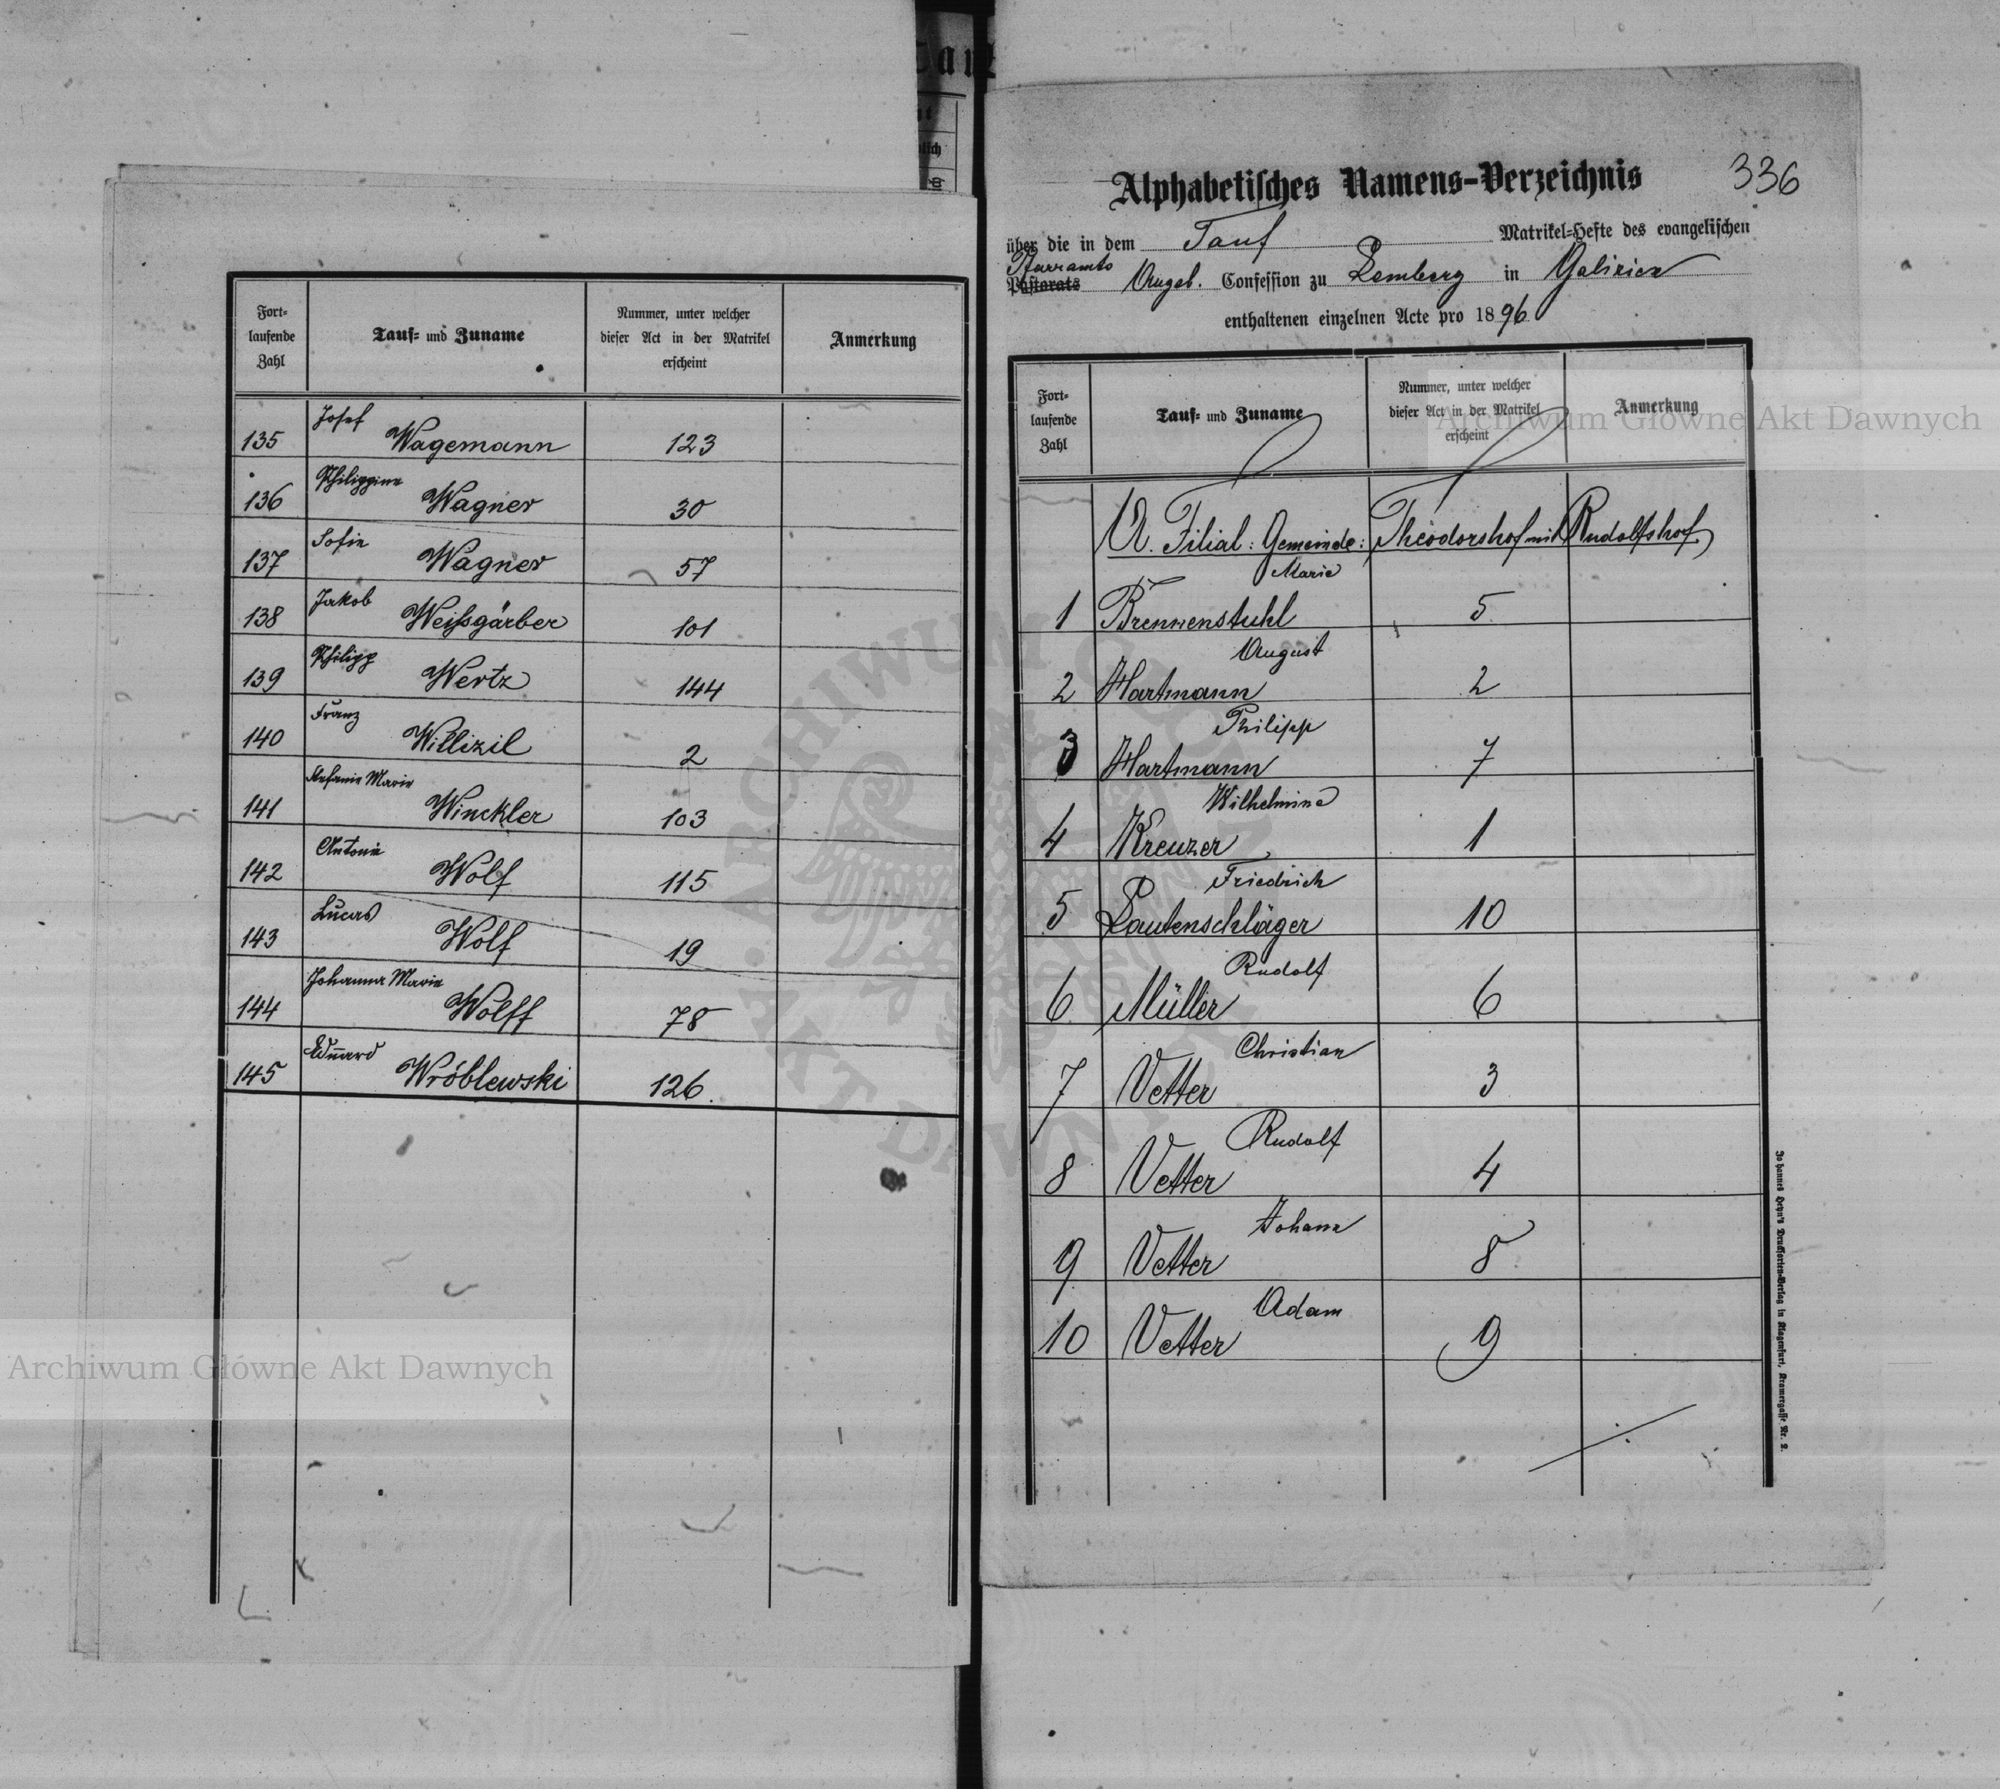 Fort-
laufende
Zahl
Tauf- und Zuname
Nummer, unter welcher
dieser Act in der Matrikel
erscheint
Anmerkung
135 Josef Wagemann 123
136 Philippine Wagner 30
137 Sofie Wagner 57
138 Jakob Weißgärber 101
139 Philipp Wertz 144
140 Franz Willizil 2
141 Stefanie Marie Winckler 103
142 Antonie Wolf 115
143 Lucas Wolf 19
144 Johanna Marie Wolff 78
145 Eduard Wróblewski 126.
Archiwum Główne Akt Dawnych
336
Alphabetisches Namens-Verzeichnis
über die in dem Tauf Matrikel-Hefte des evangelischen
Pfarramts
Pastorats Augsb. Confession zu Lemberg in Galizien
enthaltenen einzelnen Acte pro 1896
Fort-
laufende
Zahl
Tauf- und Zuname
Nummer, unter welcher
dieser Act in der Matrikel
erscheint
Anmerkung
Archiwum Główne Akt Dawnych
A. Filial: Gemeinde: Theodorshof mit Rudolfshof.
Marie
1 Brennenstuhl 5
August
2 Hartmann 2
Philipp
3 Hartmann 7
Wilhelmine
4 Kreuzer 1
Friedrich
5 Lautenschläger 10
Rudolf
6 Müller 6
Christian
7 Vetter 3
Rudolf
8 Vetter 4
Johann
9 Vetter 8
Adam
10 Vetter 9
Johannes Heyn's Drucksorten-Verlag in Klagenfurt, Kramergasse Nr. 2.
ARCHIWUM GŁÓWNE AKT DAWNYCH